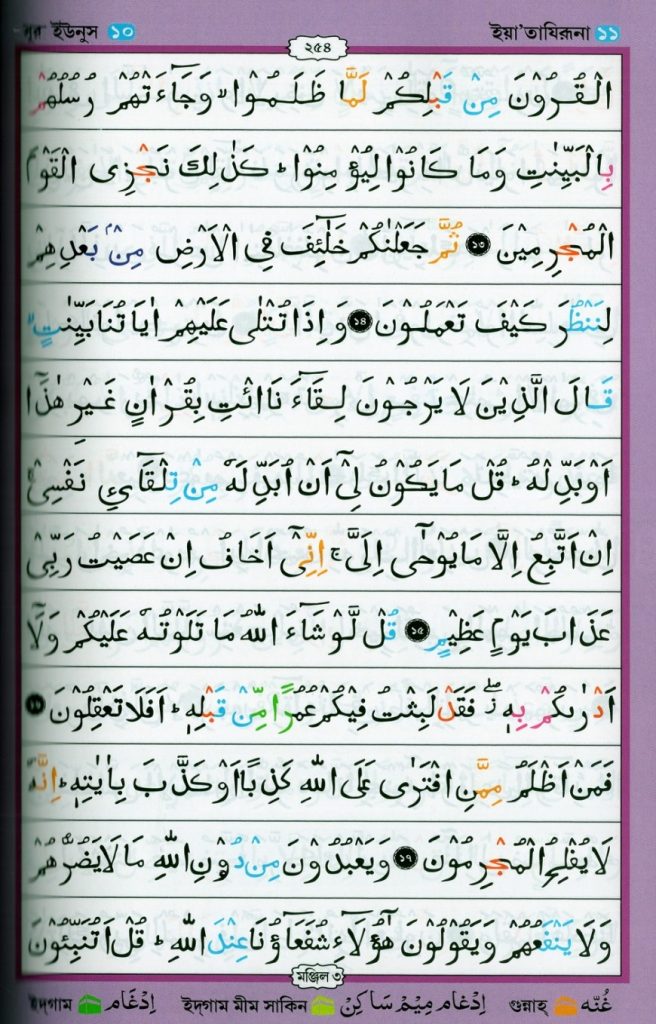 সূরা ইউনুস ১০ ইয়া'তাযিরূনা ১১
২৫৪
الْقُرُوْنَ مِنْ قَبْلِكُمْ لَمَّا ظَلَمُوْا ۙ وَجَآءَتْهُمْ رُسُلُهُمْ
بِالْبَيِّنٰتِ وَمَا كَانُوْا لِيُؤْمِنُوْا ؕ كَذٰلِكَ نَجْزِى الْقَوْمَ
الْمُجْرِمِيْنَ ১৩ ثُمَّ جَعَلْنٰكُمْ خَلٰٓئِفَ فِى الْاَرْضِ مِنْۢ بَعْدِهِمْ
لِنَنْظُرَ كَيْفَ تَعْمَلُوْنَ ১৪ وَاِذَا تُتْلٰى عَلَيْهِمْ اٰيَاتُنَا بَيِّنٰتٍ ۙ
قَالَ الَّذِيْنَ لَا يَرْجُوْنَ لِقَآءَنَا ائْتِ بِقُرْاٰنٍ غَيْرِ هٰذَآ
اَوْ بَدِّلْهُ ؕ قُلْ مَا يَكُوْنُ لِىْۤ اَنْ اُبَدِّلَهٗ مِنْ تِلْقَآئِ نَفْسِىْ ۚ
اِنْ اَتَّبِعُ اِلَّا مَا يُوْحٰۤى اِلَىَّ ۚ اِنِّىْۤ اَخَافُ اِنْ عَصَيْتُ رَبِّىْ
عَذَابَ يَوْمٍ عَظِيْمٍ ১৫ قُلْ لَّوْ شَآءَ اللّٰهُ مَا تَلَوْتُهٗ عَلَيْكُمْ وَلَاۤ
اَدْرٰىكُمْ بِهٖ ۖؗ فَقَدْ لَبِثْتُ فِيْكُمْ عُمُرًا مِّنْ قَبْلِهٖ ؕ اَفَلَا تَعْقِلُوْنَ ১৬
فَمَنْ اَظْلَمُ مِمَّنِ افْتَرٰى عَلَى اللّٰهِ كَذِبًا اَوْ كَذَّبَ بِاٰيٰتِهٖ ؕ اِنَّهٗ
لَا يُفْلِحُ الْمُجْرِمُوْنَ ১৭ وَيَعْبُدُوْنَ مِنْ دُوْنِ اللّٰهِ مَا لَا يَضُرُّهُمْ
وَلَا يَنْفَعُهُمْ وَيَقُوْلُوْنَ هٰٓؤُلَآءِ شُفَعَآؤُنَا عِنْدَ اللّٰهِ ؕ قُلْ اَتُنَبِّئُوْنَ
মঞ্জিল ৩
ইদ্গাম اِدْغَام ইদ্গাম মীম সাকিন اِدْغام مِيْمْ سَاكِنْ গুন্নাহ غُنّه